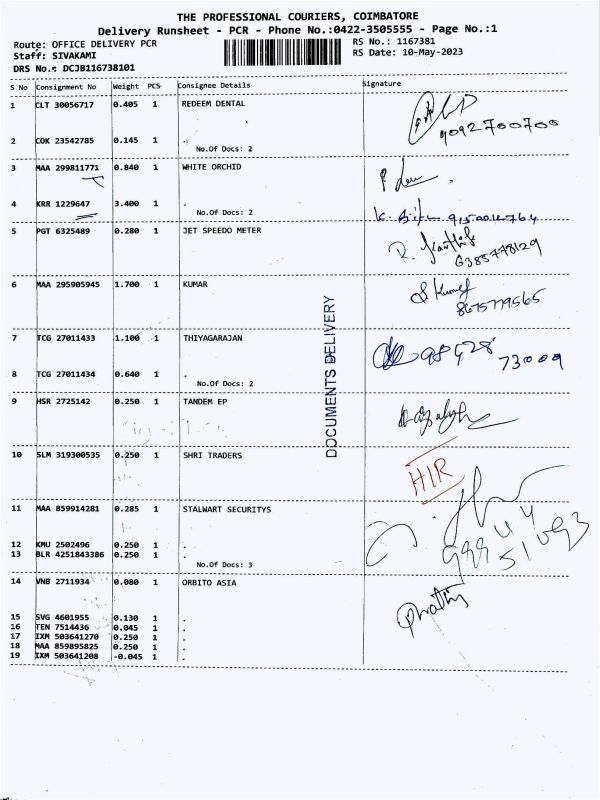 THE PROFESSIONAL COURIERS, COIMBATORE
Delivery Runsheet - PCR - Phone No.:0422-3505555 - Page No.:1
Route: OFFICE DELIVERY PCR
RS No.: 1167381
Staff: SIVAKAMI
RS Date: 10-May-2023
DRS No.: DCJB116738101
S No Consignment No Weight PCS Consignee Details Signature
1 CLT 30056717 0.405 1 REDEEM DENTAL
9092700700
2 COK 23542785 0.145 1 .
No.Of Docs: 2
3 MAA 299811771 0.840 1 WHITE ORCHID
4 KRR 1229647 3.400 1 .
No.Of Docs: 2
5 PGT 6325489 0.280 1 JET SPEEDO METER
R. Karthik
6385778129
6 MAA 295905945 1.700 1 KUMAR
S Kumar
8675779565
7 TCG 27011433 1.100 1 THIYAGARAJAN
98428
73009
8 TCG 27011434 0.640 1 .
No.Of Docs: 2
DOCUMENTS DELIVERY
9 HSR 2725142 0.250 1 TANDEM EP
10 SLM 319300535 0.250 1 SHRI TRADERS
HIR
11 MAA 859914281 0.285 1 STALWART SECURITYS
12 KMU 2502496 0.250 1 .
13 BLR 4251843386 0.250 1 .
No.Of Docs: 3
14 VNB 2711934 0.080 1 ORBITO ASIA
15 SVG 4601955 0.130 1 .
16 TEN 7514436 0.045 1 .
17 IXM 503641270 0.250 1 .
18 MAA 859895825 0.250 1 .
19 IXM 503641208 -0.045 1 .